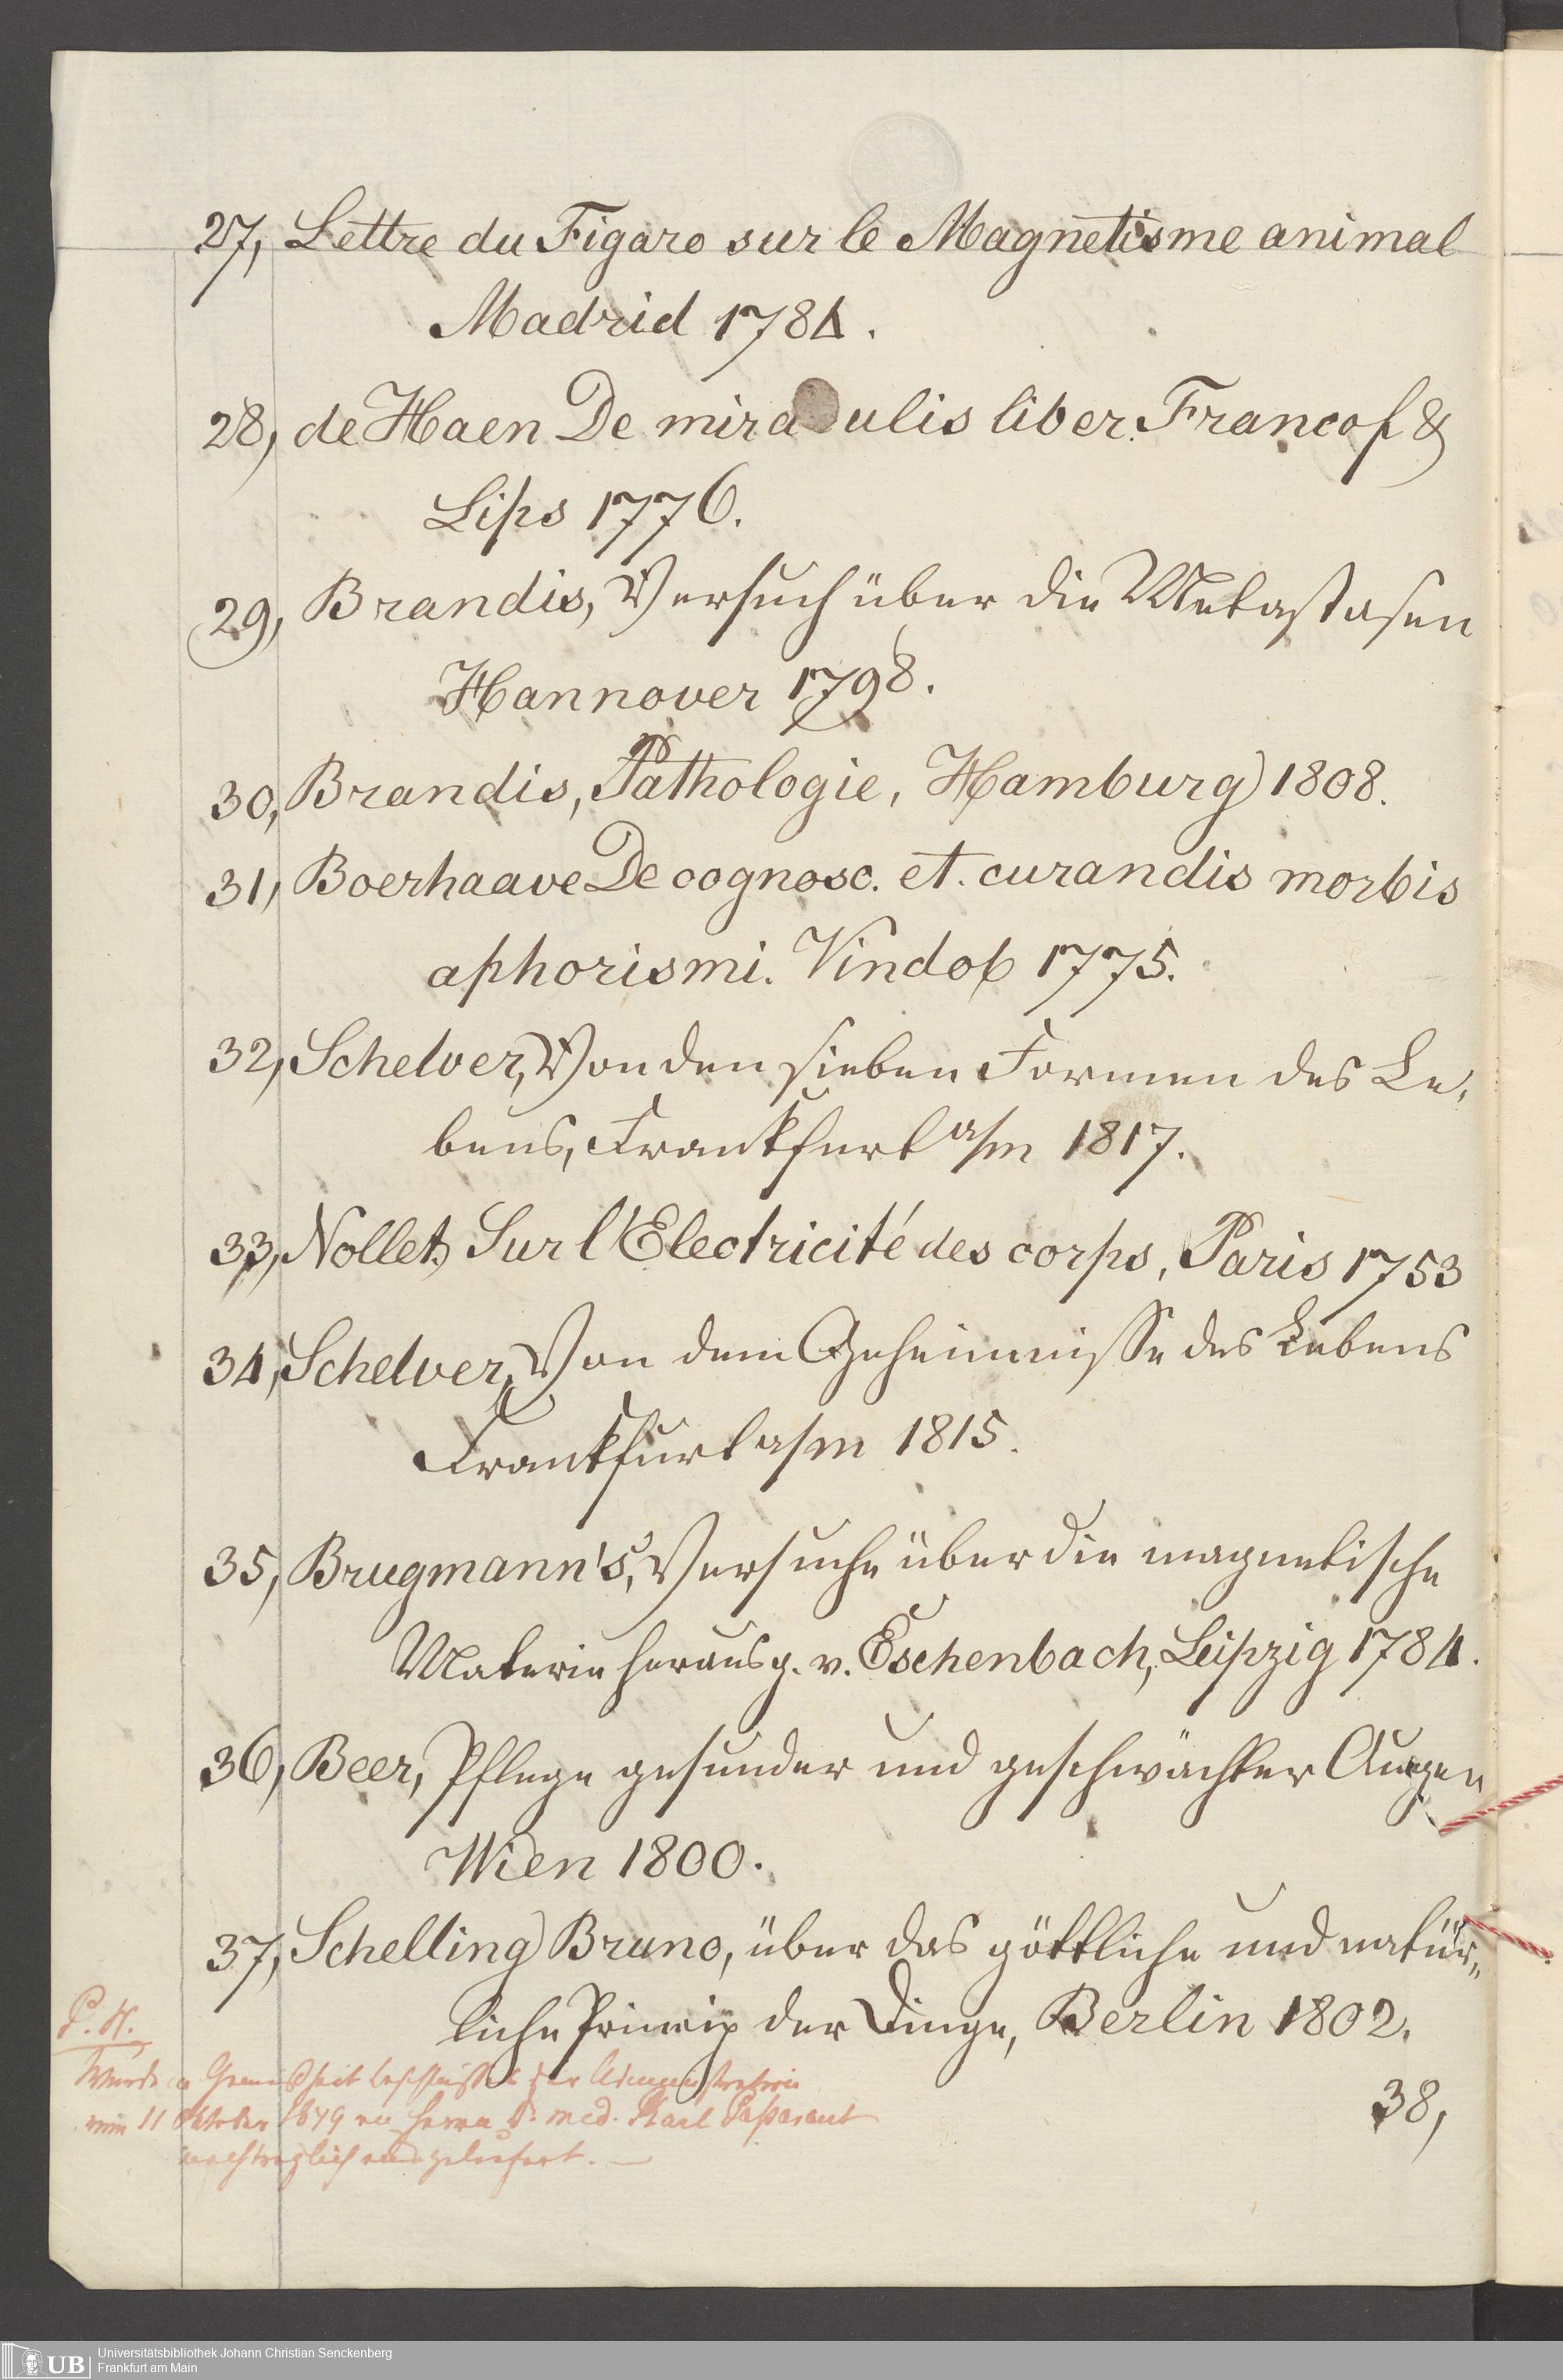 27, Lettre du Figaro sur le Magnetisme animal
Madrid 1784.
28, de Haen De mira ulis liber. Francof &
Lips 1776.
29, Brandis, Versuch über die Metastasen
Hannover 1798.
30, Brandis, Pathologie, Hamburg 1808.
31, Boerhaave De cognosc. et. curandis morbis
aphorismi. Vindob 1775.
32, Schelver, Von den sieben Formen des Le,
bens, Frankfurt a/m 1817.
33, Nollet, Sur l'Electricité des corps, Paris 1753
34, Schelver, Von dem Geheimnisse des Lebens
Frankfurt a/m 1815.
35, Brugmann's, Versuche über die magnetische
Materie herausg. v. Eschenbach, Leipzig 1784.
36, Beer, Pflege gesunder und geschwächter Augen
Wien 1800.
37, Schelling Bruno, über das göttliche und natür„
liche Princip der Dinge, Berlin 1802.
38,
Wurde in Gemäßheit Beschlusses der Administration
vom 11 Oktober 1849 an Herrn Dr. med. Karl Passavant
nachträglich ausgeliefert. —
Universitätsbibliothek Johann Christian Senckenberg
Frankfurt am Main
UB